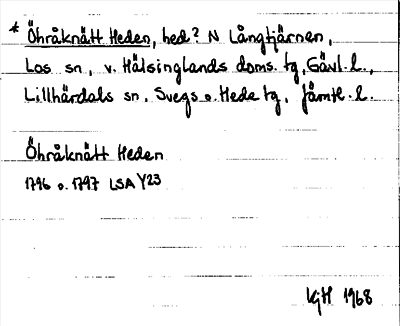 * Öhråknätt Heden, hed? N Långtjärnen,
Los sn, v. Hälsinglands doms. tg, Gävl. l.,
Lillhärdals sn, Svegs o. Hede tg, Jämtl. l.
Öhråknätt Heden
1796 o. 1797 LSA Y23
KjH 1968